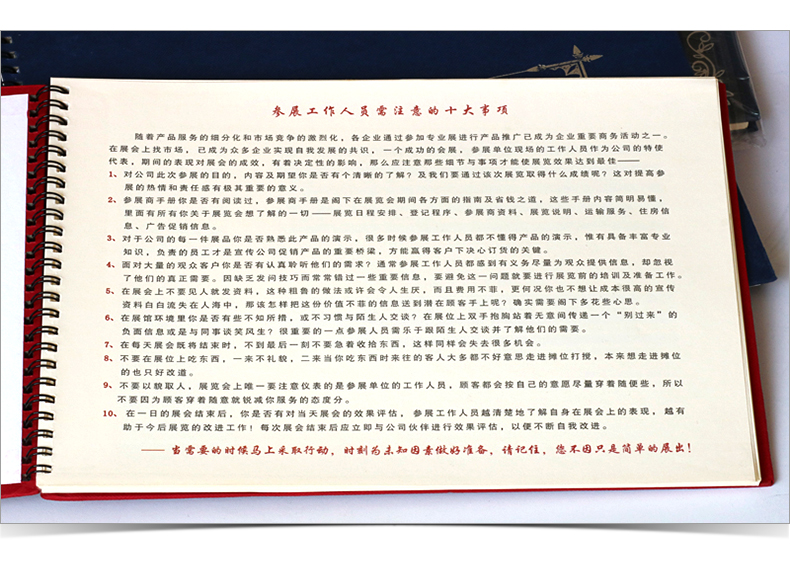 参展工作人员需注意的十大事项
随着产品服务的细分化和市场竞争的激烈化，各企业通过参加专业展进行产品推广已成为企业重要商务活动之一。
在展会上找市场，已成为众多企业实现自我发展的共识，一个成功的会展，参展单位现场的工作人员作为公司的特使
代表，期间的表现对展会的成效，有着决定性的影响，那么应注意那些细节与事项才能使展览效果达到最佳——
1、对公司此次参展的目的，内容及期望你是否有个清晰的了解？及我们要通过该次展览取得什么成绩呢？这对提高参
展的热情和责任感有极其重要的意义。
2、参展商手册你是否有阅读过，参展商手册是阁下在展览会期间各方面的指南及省钱之道，这些手册内容简明易懂，
里面有所有你关于展览会想了解的一切——展览日程安排、登记程序、参展商资料、展览说明、运输服务、住房信
息、广告促销信息。
3、对于公司的每一件展品你是否熟悉此产品的演示，很多时候参展工作人员都不懂得产品的演示，惟有具备丰富专业
知识，负责的员工才是宣传公司促销产品的重要桥梁，方能赢得客户下决心订货的关键。
4、面对大量的观众客户你是否有认真聆听他们的需求？通常参展工作人员都感到有义务尽量为观众提供信息，却忽视
了他们的真正需要。因缺乏发问技巧而常常错过一些重要信息，要避免这一问题就要进行展览前的培训及准备工作。
5、在展会上不要见人就发资料，这种粗鲁的做法或许会令人生厌，而且费用不菲，更何况你也不想让成本很高的宣传
资料白白流失在人海中，那该怎样把这份价值不菲的信息送到潜在顾客手上呢？确实需要阁下多花些心思。
6、在展馆环境里你是否有些不知所措，或不习惯与陌生人交谈？在展位上双手抱胸站着无意间传递一个“别过来”的
负面信息或是与同事谈笑风生？很重要的一点参展人员需乐于跟陌生人交谈并了解他们的需要。
7、在每天展会既将结束时，不到最后一刻不要急着收拾东西，这样同样会失去很多机会。
8、不要在展位上吃东西，一来不礼貌，二来当你吃东西时来往的客人大多都不好意思走进摊位打搅，本来想走进摊位
的也只好改道。
9、不要以貌取人，展览会上唯一要注意仪表的是参展单位的工作人员，顾客都会按自己的意愿尽量穿着随便些，所以
不要因为顾客穿着随意就锐减你服务的态度分。
10、在一日的展会结束后，你是否有对当天展会的效果评估，参展工作人员越清楚地了解自身在展会上的表现，越有
助于今后展览的改进工作！每次展会结束后应立即与公司伙伴进行效果评估，以便不断自我改进。
—— 当需要的时候马上采取行动，时刻为未知因素做好准备，请记住，您不因只是简单的展出！